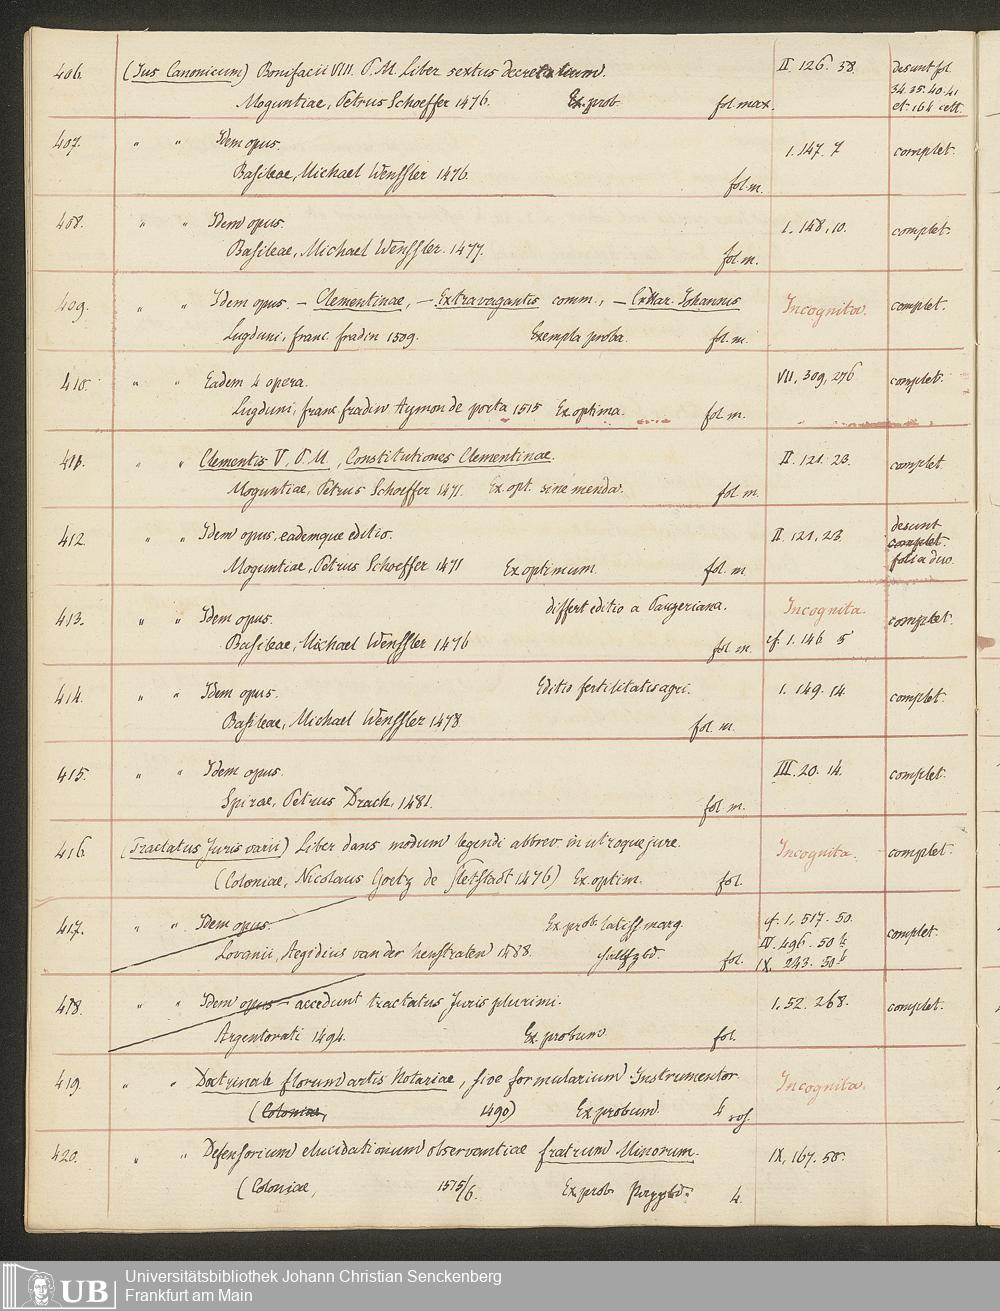 406. (Jus Canonicum) Bonifacii VIII. P. M. Liber sextus decretalium. II. 126. 38. desunt fol.
Moguntiae, Petrus Schoeffer 1476. Ex. prob. fol. max. 34. 35. 40. 41
et. 164 cett.
407. " " Idem opus. 1. 147. 7 complet.
Basileae, Michael Wenssler 1476. fol. m.
408. " " Idem opus. 1. 148. 10. complet.
Basileae, Michael Wenssler. 1477. fol. m.
409. " " Idem opus. – Clementinae, – Extravagantis comm., – Johannis Incognita. complet.
Lugduni, franc. fradin 1509. Exempla proba. fol. m.
410. " " Eadem 4 opera. VII, 309, 276 complet.
Lugduni, franc fradin Aymon de porta 1515 Ex. optima. fol. m.
411. " " Clementis V. P. M., Constitutiones Clementinae. II. 121. 23. complet.
Moguntiae, Petrus Schoeffer 1471. Ex. opt. sine menda. fol. m.
412. " " Idem opus, eademque editio. II. 121, 23 desunt
complet.
Moguntiae, Petrus Schoeffer 1471 Ex optimum. fol. m. folia duo.
413. " " Idem opus. differt editio a Panzeriana. Incognita. complet.
Basileae, Michael Wenssler 1476 fol. m. cf. 1. 146 5
414. " " Idem opus. Editio fertilitatis agri. 1. 149. 14. complet.
Basileae, Michael Wenssler 1478. fol. m.
415. " " Idem opus. III. 20. 14. complet.
Spirae, Petrus Drach, 1481. fol. m.
416. (Tractatus Juris varii) Liber dans modum legendi abbrev. in utroque jure. Incognita. complet.
(Coloniae, Nicolaus Goetz de Sletstadt 1476) Ex. optim. fol.
417. " " Idem opus. Ex. prob. latiss marg. cf. 1, 517. 50. complet.
Lovanii, Aegidius van der heustraten 1488. fol. IV. 496. 50 b
IX. 243. 50 b
418. " " Idem opus – accedunt tractatus Juris plurimi. 1. 52. 268. complet.
Argentorati 1494. Ex. probum fol.
419. " " Doctrinale florum artis Notariae, sive formularium Instrumentor. Incognita.
(Coloniae, 1490) Ex probum. 4
420. " " Defensorium elucidationum observantiae fratrum Minorum. IX, 167. 50.
(Coloniae, 1515/6. Ex prob. 4.
UB Universitätsbibliothek Johann Christian Senckenberg
Frankfurt am Main